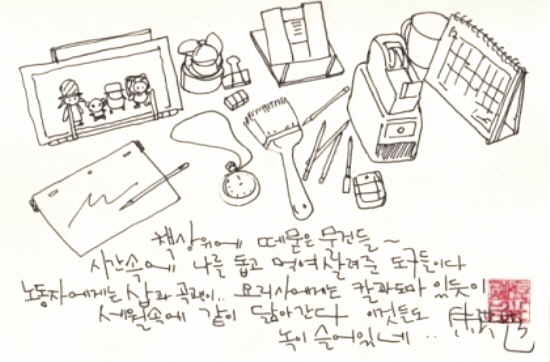 책상위에 때묻은 물건들~
시간속에 나를 돕고 먹여살려준 도구들이다
노동자에게는 삽과 곡괭이.. 요리사에게는 칼과도마 있듯이
세월속에 같이 닮아간다 이것들도
녹이 슬어있네..